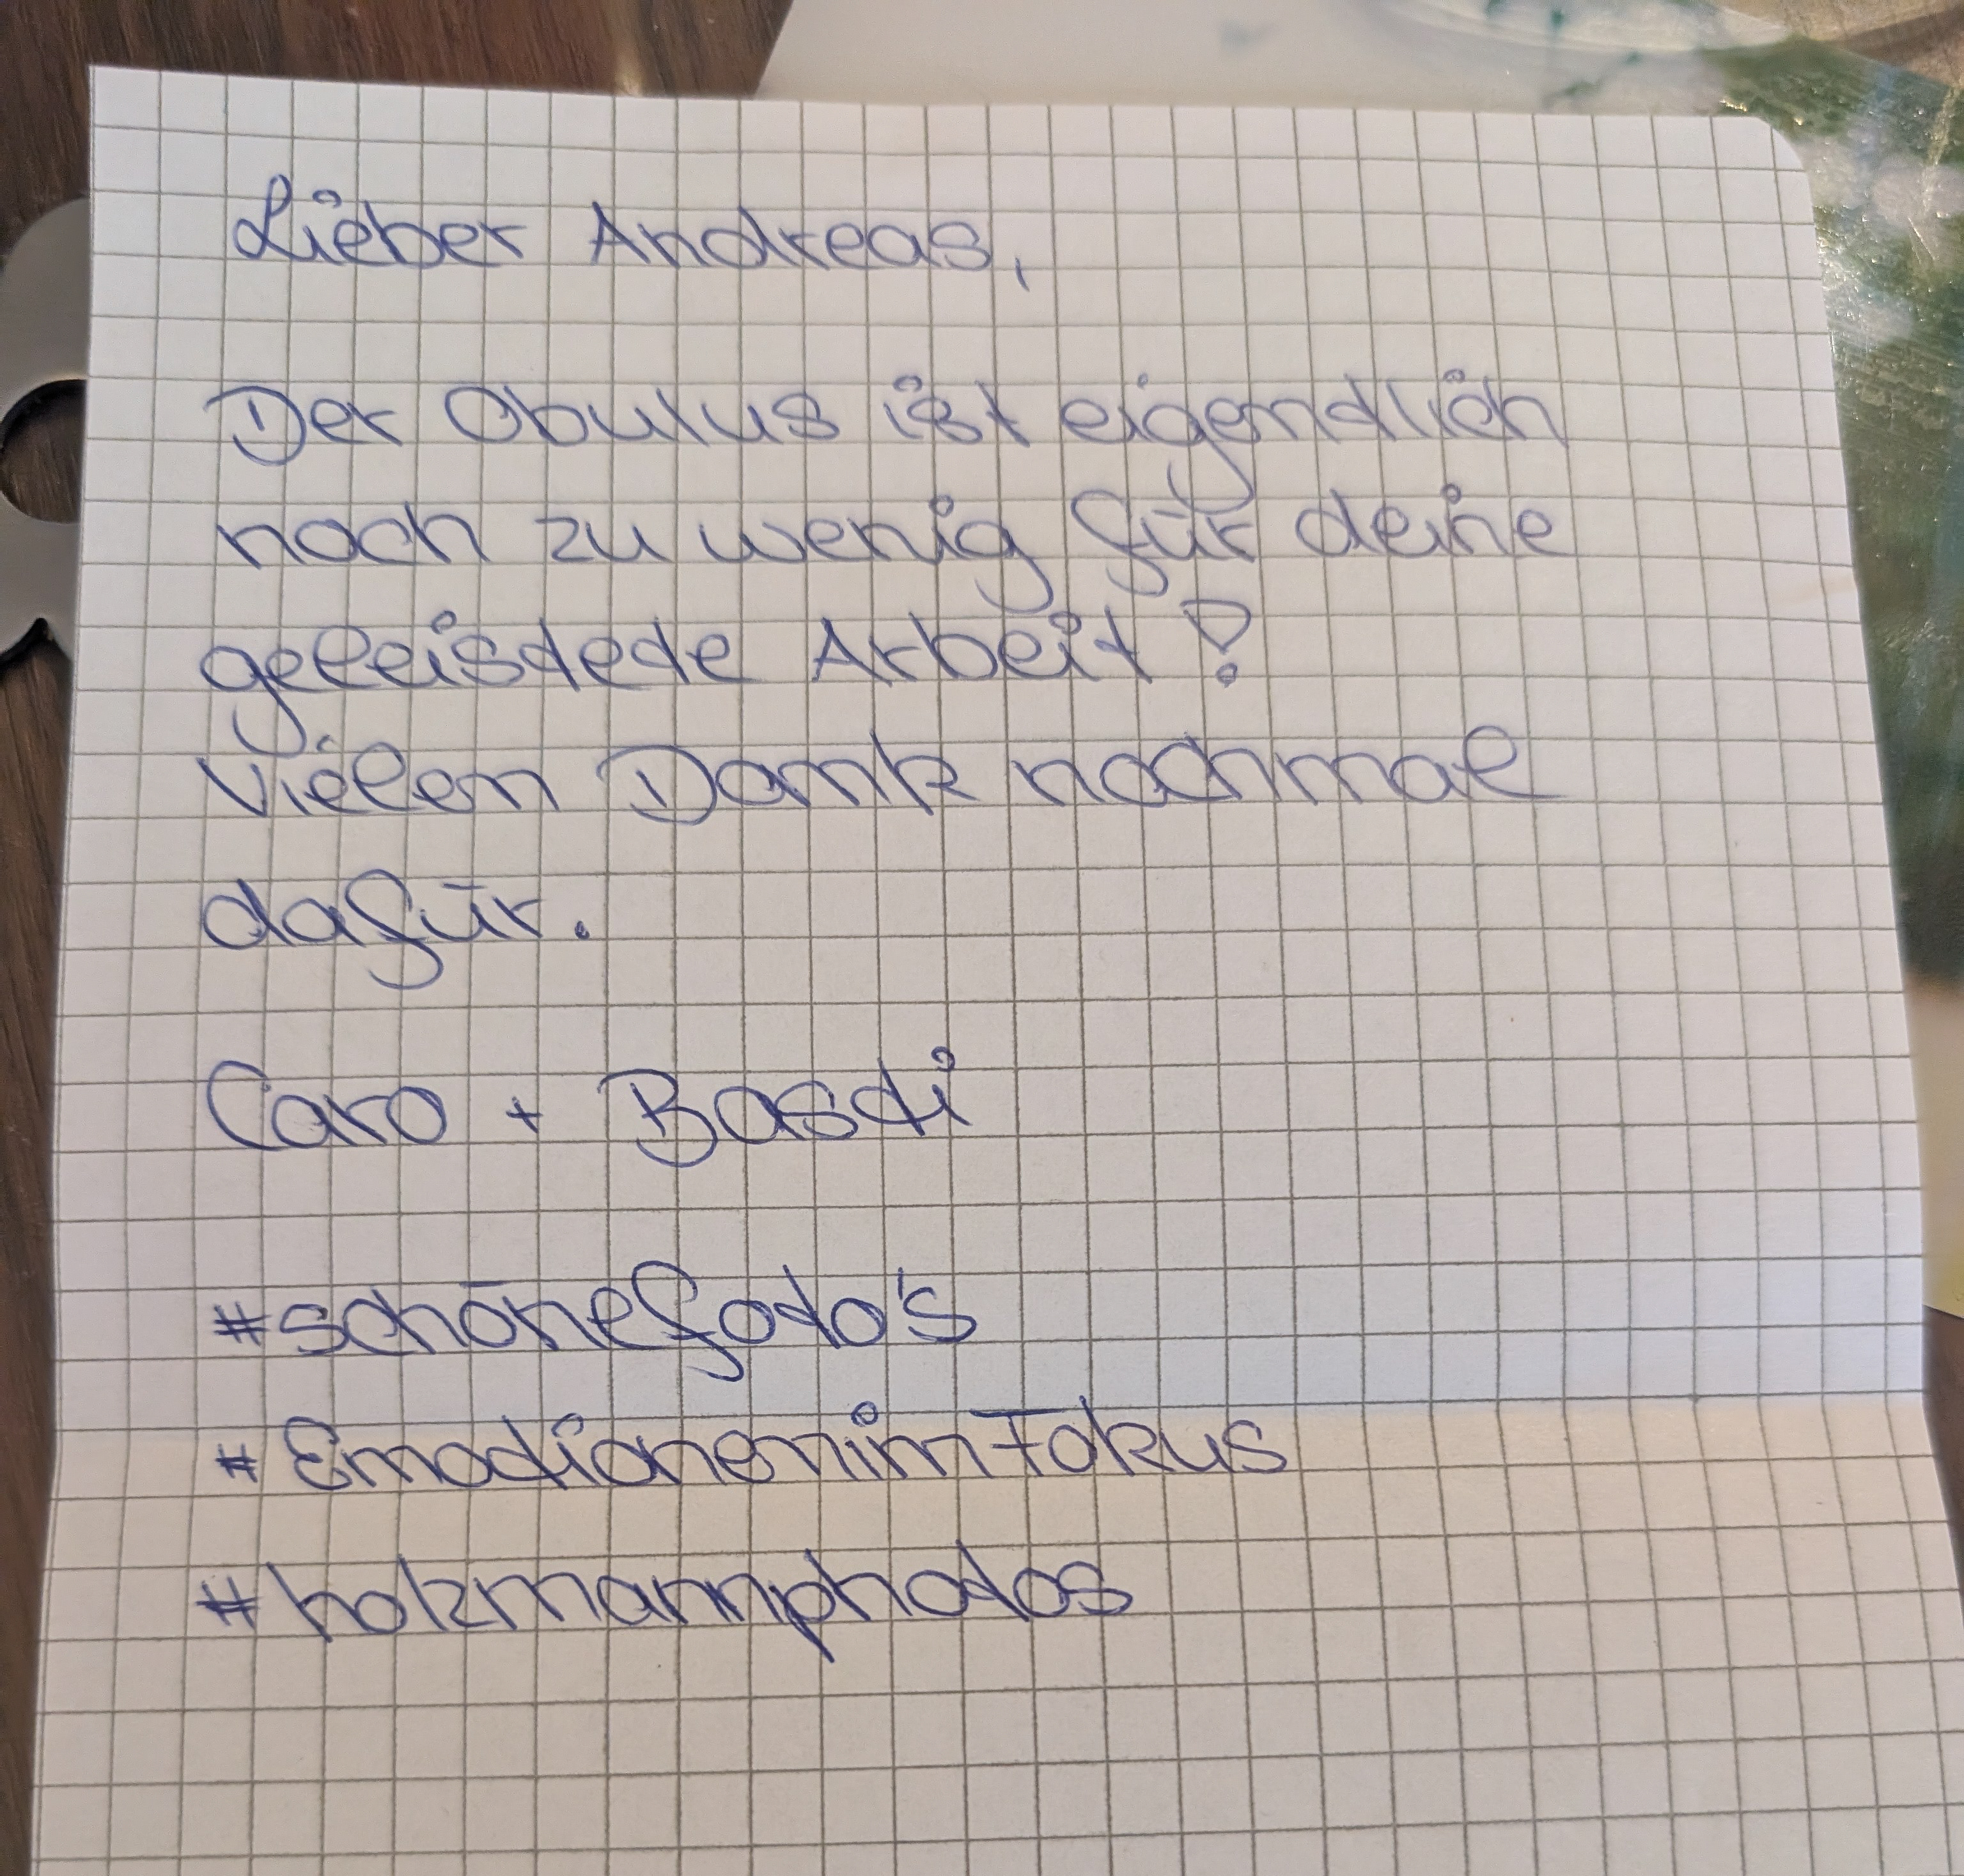 Lieber Andreas,
Der Obulus ist eigendlich
noch zu wenig für deine
geleisdede Arbeit!
Vielen Dank nochmal
dafür.
Caro + Basdi
#schönefodo's
#EmodionenimFokus
#holzmannphodos